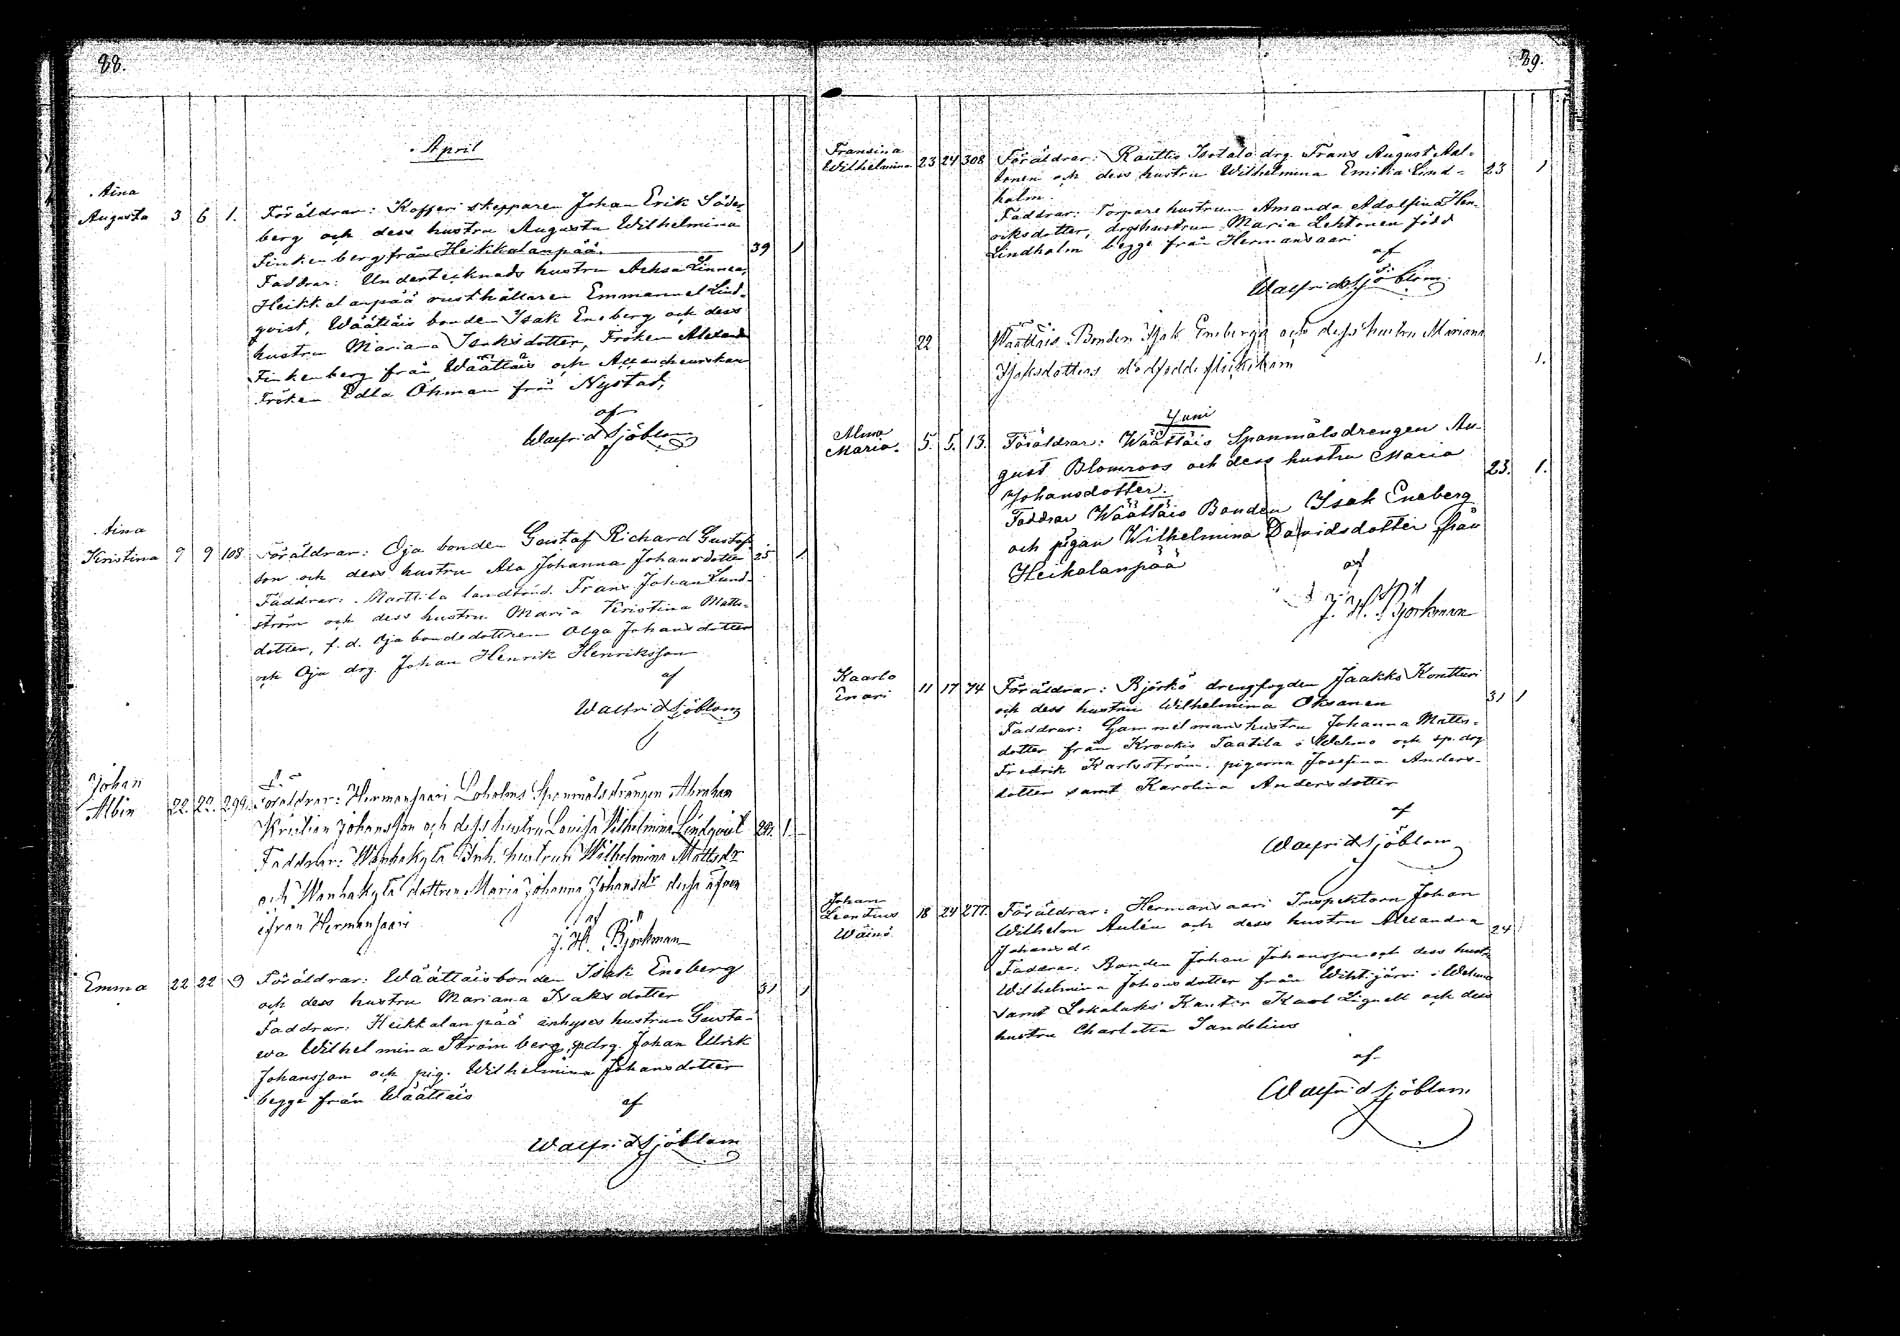 88.
April
Aina
Augusta 3 6 1. Föräldrar: Kofferi skepparen Johan Erik Söder-
berg och dess hustru Augusta Wilhelmina
Finkenberg från Heikkalanpää. 39 1
Faddrar: Undertecknads hustru Achsa Linnea,
Heikkalanpää rusthållaren Emmanuel Lind-
qvist, Wäättäis bonden Isak Eneberg och dess
hustru Mariana Isaksdotter, Fröken Alexand
Finkenberg från Wäättäis och
Fröken Edla Öhman från Nystad,
af
Walfrid Sjöblom
Aina
Kristina 9 9 108 Föräldrar: Oja bonden Gustaf Richard Gustafs-
son och dess hustru Ada Johanna Johansdotter 25 1
Faddrar: Marttila landbond. Frans Johan Lund-
ström och dess hustru Maria Kristina Matts-
dotter, f. d. Oja bondedottren Olga Johansdotter
och Oja drg. Johan Henrik Henriksson
af
Walfrid Sjöblom
Johan
Albin 22. 22. 299. Föräldrar: Hermansaari Loholms Spanmålsdrängen Abraham
Kristian Johansson och dess hustru Lovisa Wilhelmina Lindqvist 29. 1
Faddrar: Wanhakylä Inh. hustrun Wilhelmina Mattsdr
och Wanhakylä dottren Maria Johanna Johansdr dessa äfven
ifrån Hermansaari
af
J. H. Björkman
Emma 22 22 9 Föräldrar: Wäättäisbonden Isak Eneberg
och dess hustru Mariana Isaksdotter 31 1
Faddrar: Heikkalanpää inhyses hustrun Gusta-
eva Wilhelmina Strömberg, spdrg. Johan Ulrik
Johansson och pig. Wilhelmina Johansdotter
begge från Wäättäis
af
Walfrid Sjöblom
89.
Fransina
Wilhelmina 23 24 308 Föräldrar: Ranttis Isotalo drg. Frans August Aal-
tonen och dess hustru Wilhelmina Emilia Lind- 23 1
holm.
Faddrar: Torpare hustrun Amanda Adolfina Hen-
riksdotter, drgshustrun Maria Lehtonen född
Lindholm begge från Hermansaari
af
Walfrid Sjöblom.
22 Wäättäis Bonden Isak Enebergs och dess hustru Mariana
Isaksdotters dödfödda flickebarn 1.
Juni
Alma
Maria. 5. 5. 13. Föräldrar: Wäättäis Spanmålsdrengen Au-
gust Blomroos och dess hustru Maria
Johansdotter. 23. 1.
Faddrar Wäättäis Bonden Isak Eneberg
och pigan Wilhelmina Davidsdotter från
Heikalanpää
af
J. H. Björkman
Kaarlo
Enari 11 17 74 Föräldrar: Björkö drengfogden Jaakko Kontturi
och dess hustru Wilhelmina Oksanen 31 1
Faddrar: Gammelmans hustru Johanna Matts-
dotter från Krookis Taatila i Wehmo och sp. drg
Fredrik Karlsström, pigorna Josefina Anders-
dotter samt Karolina Andersdotter
af
Walfrid Sjöblom
Johan
Leontius
Wäinö 18 24 277. Föräldrar: Hermansaari Inspektorn Johan
Wilhelm Aulén och dess hustru Alexandra 24
Johansdr.
Faddrar: Bonden Johan Johansson och dess hustru
Wilhelmina Johansdotter från Wihtijärvi i Wehmo
samt Lokalaks Kantor Karl Lignell och dess
hustru Charlotta Sandelius
af
Walfrid Sjöblom.